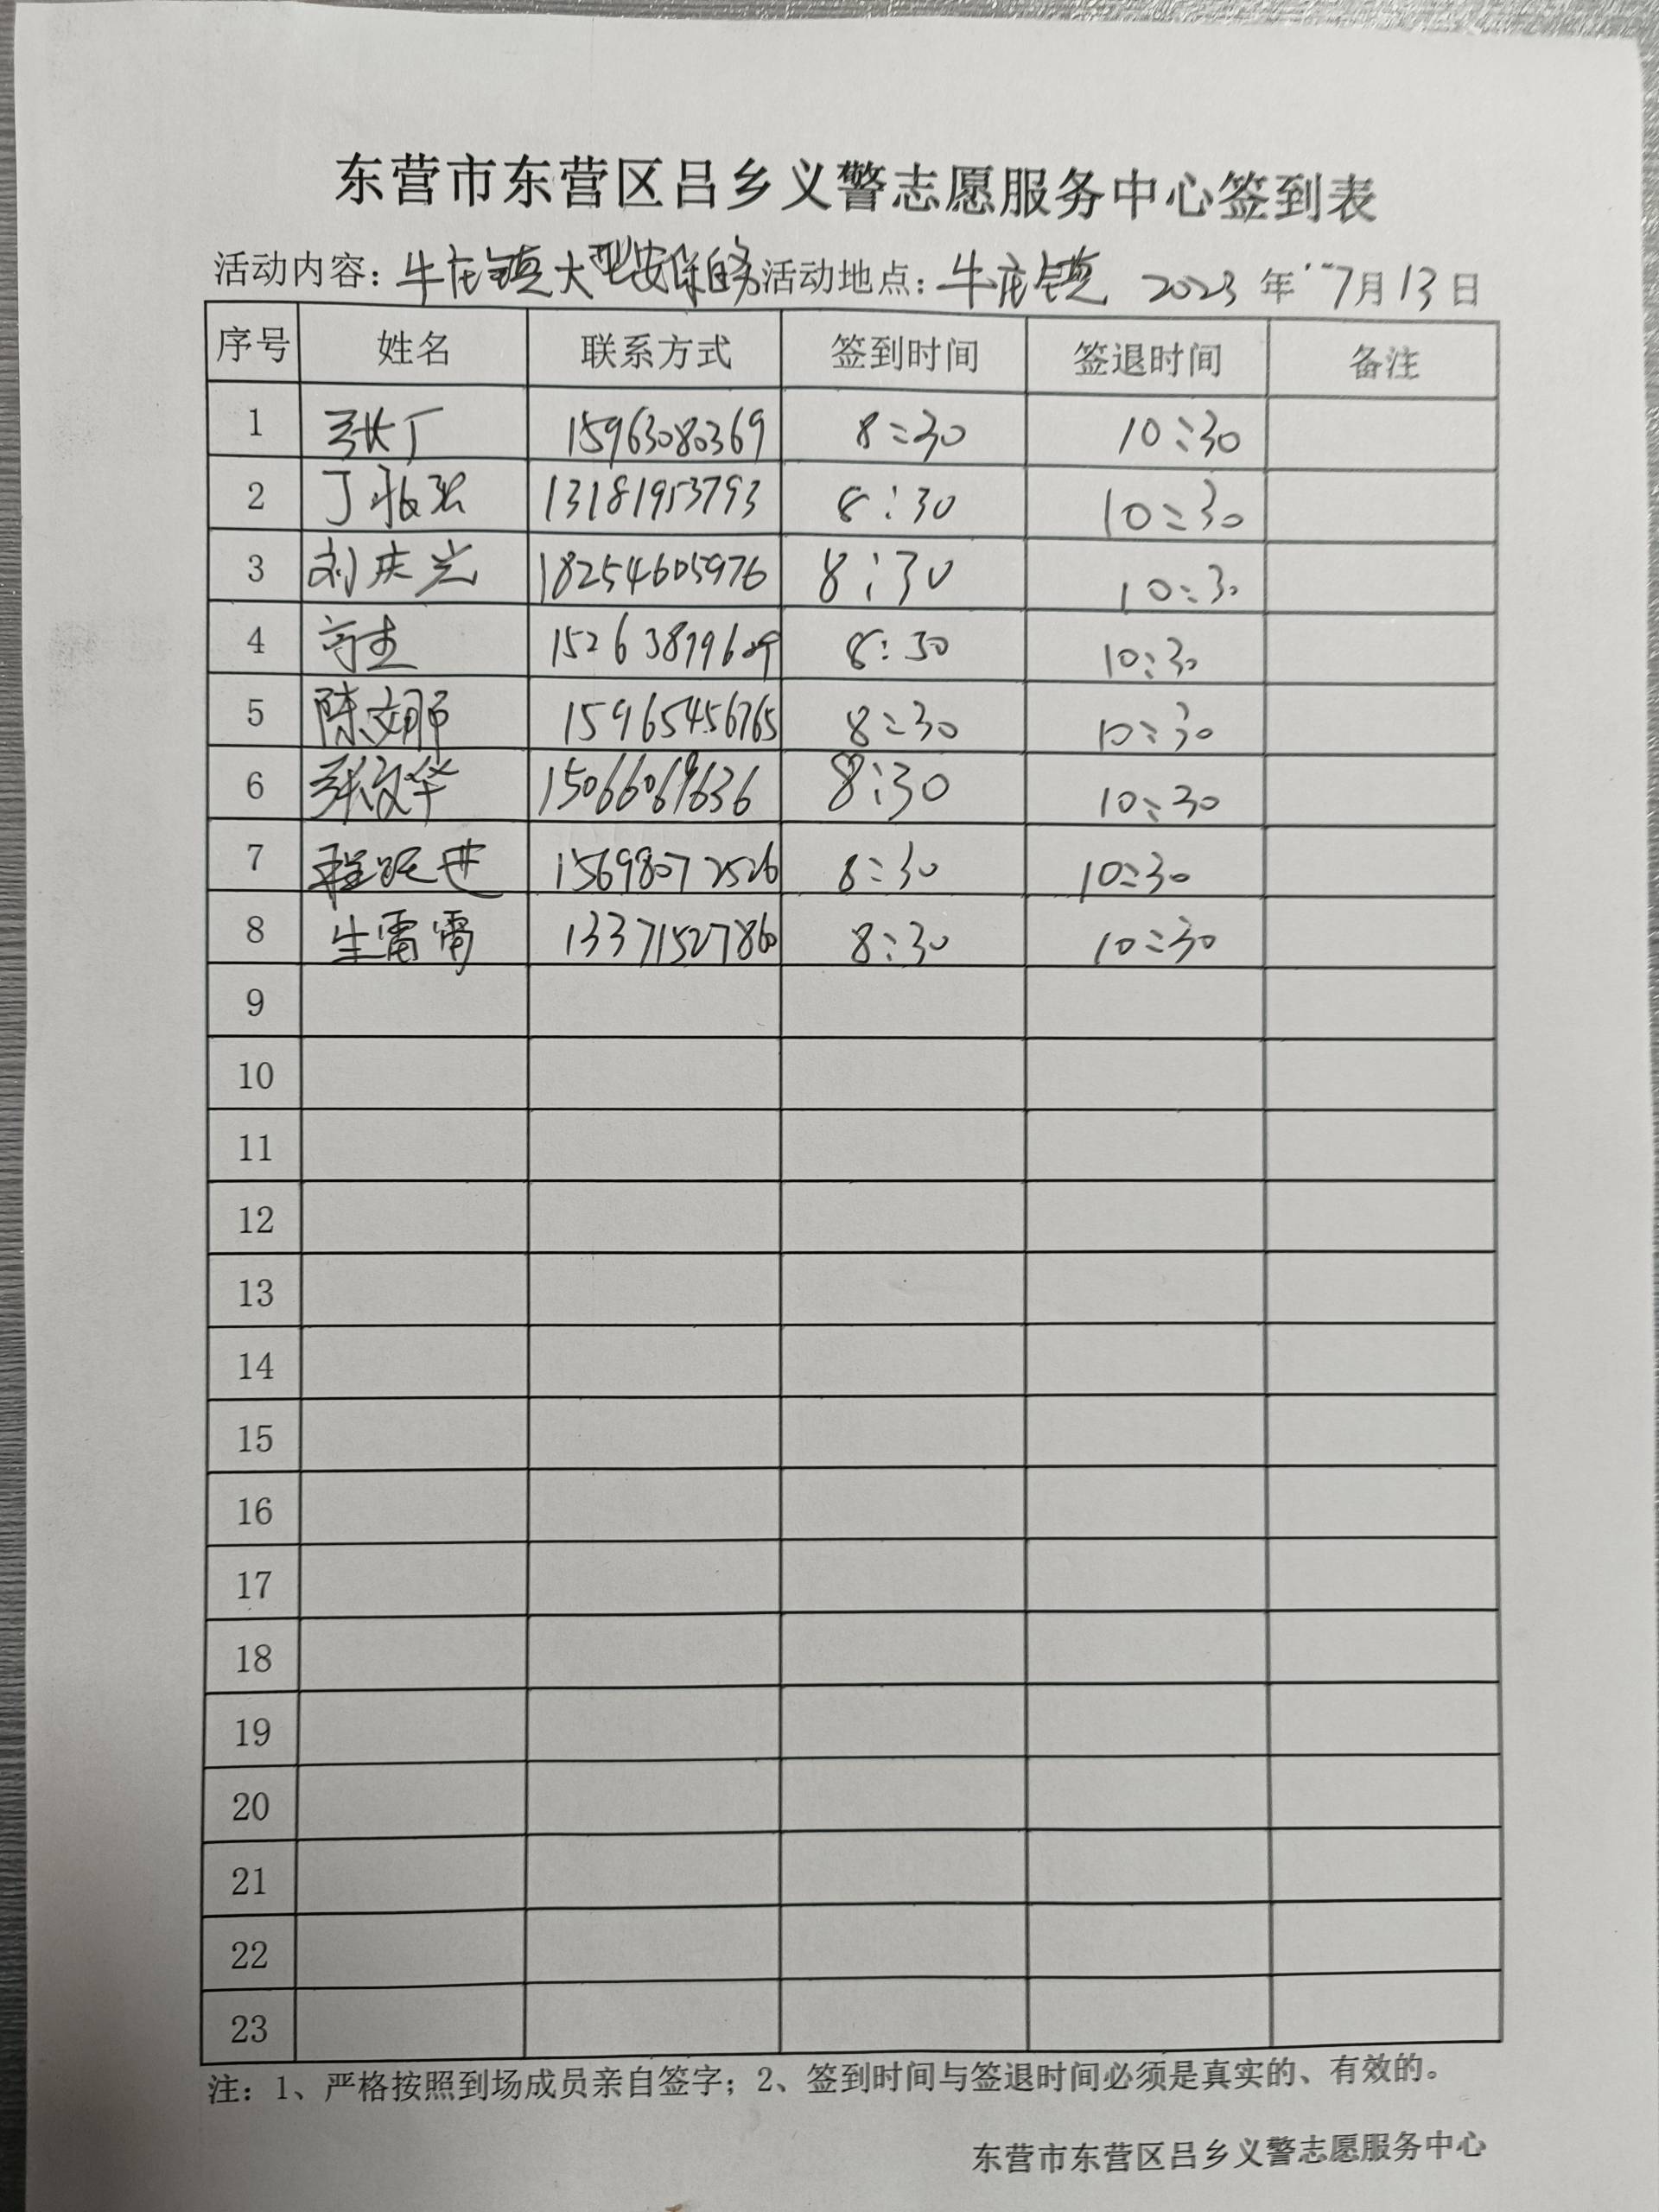 东营市东营区吕乡义警志愿服务中心签到表
活动内容：牛庄镇大型安保 活动地点：牛庄镇 2023年7月13日
序号 姓名 联系方式 签到时间 签退时间 备注
1 张丁 15963080369 8:30 10:30
2 丁 13181953793 8:30 10:30
3 刘庆光 18254605976 8:30 10:30
4 8:30 10:30
5 陈文娜 15965456765 8:30 10:30
6 张文华 15066069636 8:30 10:30
7 程跃进 15698072526 8:30 10:30
8 生雷雷 13371527860 8:30 10:30
9
10
11
12
13
14
15
16
17
18
19
20
21
22
23
注：1、严格按照到场成员亲自签字；2、签到时间与签退时间必须是真实的、有效的。
东营市东营区吕乡义警志愿服务中心